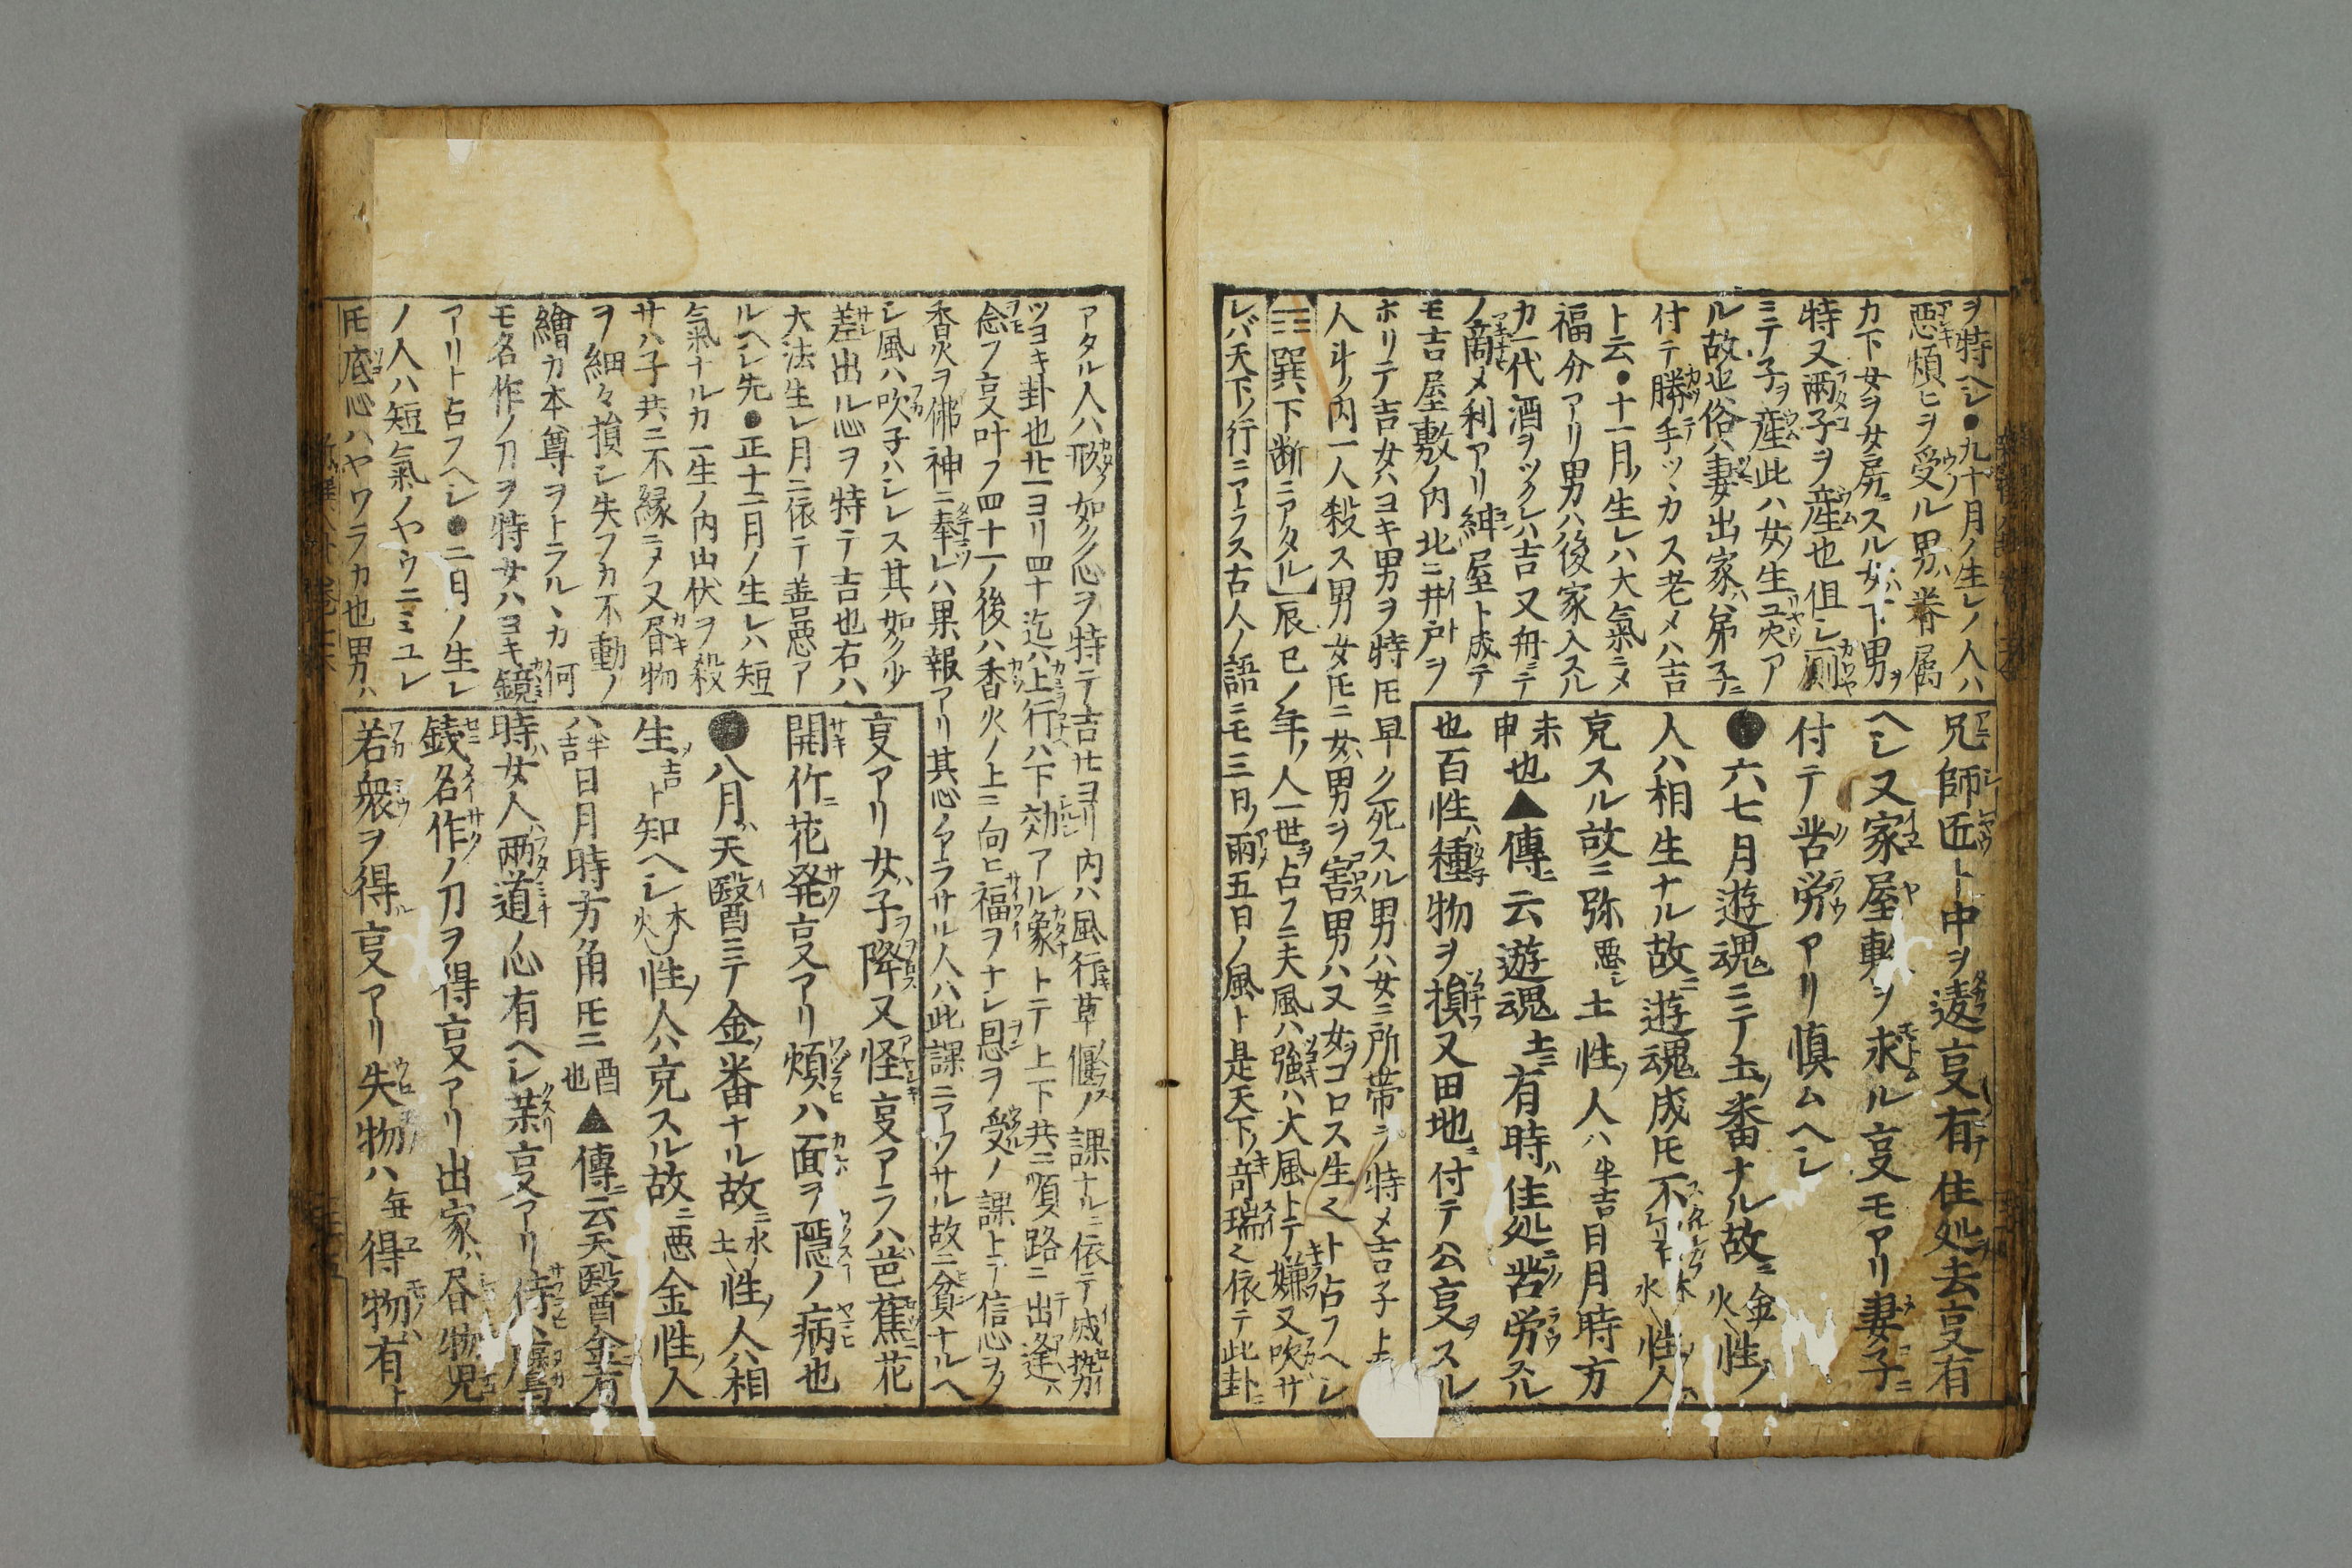 ヲ特ヘシ●九十月ノ生レノ人ハ
悪煩ヒヲ受ル男ハ眷属
カ下女ヲ女房ニスル女ハ下男ヲ
特又兩子ヲ産也但シ厠
ミテ子ヲ産此ハ女ノ生ユ穴ア
ル故也俗ハ妻ニ出家ハ弟子ニ
付テ勝手ツヽカス老メハ吉
ト云●十一月ノ生レハ大氣ニメ
福分アリ男ハ後家入スル
カ一代酒ヲツクレハ吉又舟ニテ
ノ商メ利アリ紳屋ト成テ
モ吉屋敷ノ内北ニ井戸ヲ
ホリテ吉女ハヨキ男ヲ特トモ早ク死スル男ハ女ニ所帯ヲ特メ吉子上
人斗ノ内一人殺ス男女トモニ女男ヲ害男ハ又女ヲコロス生之ト占フヘシ
☴巽下断ニアタル辰巳ノ年ノ人一世ヲ占フニ夫風ハ強ハ大風トテ嫌又吹サ
レバ天下ノ行ニアラス古人ノ語ニモ三日ノ雨五日ノ風ト是天下ノ奇瑞之依テ此卦ニ
兄師匠ト中ヲ違㕝有住処去㕝有
ヘシ又家屋ヲ求ル㕝モアリ妻子ニ
付テ苦労アリ慎ムヘシ
●六七月遊魂ニテ土ノ番ナル故ニ金火性ノ
人ハ相生ナル故ニ遊魂成トモ不木水性ノ人ハ
克スル故ニ弥悪シ土性ノ人ハ半吉日月時方
未申也▲傳ニ云遊魂土ニ有時ハ住処ニ苦労スル
也百性ハ種物ヲ損又田地ニ付テ公㕝ヲスル
アタル人ハ形ノ如ク心ヲ特テ吉廿ヨリ内ハ風行草偃ノ課ナルニ依テ威勢カ
ツヨキ卦也廿一ヨリ四十迄ハ上行ハ下効アル象トテ上下共ニ順路ニ出逢ハ
念フ㕝叶フ四十一ノ後ハ香火ノ上ニ向ヒ福ヲナシ恩ヲ受ノ課上テ信心ヲメ
香火ヲ佛神ニ奉レハ果報アリ其心ノアラサル人ハ此課ニアワサル故ニ貧ナルヘ
シ風ハ吹子ハシレス其如ク少
差出ル心ヲ特テ吉也右ハ
大法生レ月ニ依テ善悪ア
ルヘシ先●正十二月ノ生レハ短
氣ナルカ一生ノ内山伏ヲ殺
サハ子共ニ不縁ニメ又昼物
ヲ細々損シ失フカ不動ノ
繪カ本尊ヲトラルヽカ何
モ名作ノ刀ヲ特女ハヨキ鏡
アリト占フヘシ●二月ノ生レ
ノ人ハ短氣ノヤウニミユレ
トモ底心ハヤワラカ也男ハ
㕝アリ女ハ子ヲ降又怪㕝アラハ芭蕉花
開竹ニ花発㕝アリ煩ハ面ヲ隠ノ病也
●八月ハ天醫ニテ金ノ番ナル故ニ水土性ノ人ハ相
生ヲ吉ト知ヘシ木火性ノ人ハ克スル故ニ悪金性ノ人
ハ半吉日月時方角トモニ酉也▲傳ニ云天醫金ニ有
時ハ女人ハ両道心有ヘシ薬㕝アリ侍ハ鷹
銭名作ノ刀ヲ得㕝アリ出家ハ昼物児
若衆ヲ得㕝アリ失物ハ毎得物有上